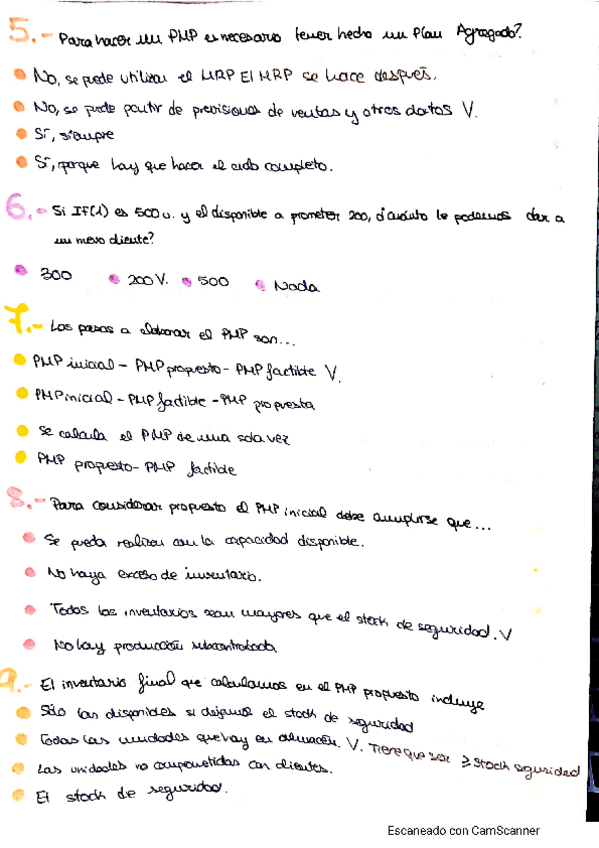 5.- Para hacer un PMP es necesario tener hecho un Plan Agregado?
No, se puede utilizar el MRP El MRP se hace después.
No, se puede partir de previsiones de ventas y otros datos V.
Sí, siempre
Sí, porque hay que hacer el ciclo completo.
6.- Si IF(1) es 500 u. y el disponible a prometer 200, ¿cuánto le podemos dar a
un nuevo cliente?
300 200 V. 500 Nada
7.- Los pasos a elaborar el PMP son...
PMP inicial - PMP propuesto - PMP factible V.
PMP inicial - PMP factible - PMP propuesta
Se calcula el PMP de una sola vez
PMP propuesto - PMP factible
8.- Para considerar propuesto el PMP inicial debe cumplirse que...
Se pueda realizar con la capacidad disponible.
No haya exceso de inventario.
Todos los inventarios sean mayores que el stock de seguridad. V
No hay producción subcontratada
9.- El inventario final que calculamos en el PMP propuesto incluye
Sólo las disponibles si dejamos el stock de seguridad
Todas las unidades que hay en almacén. V. Tiene que ser ≥ Stock seguridad
Las unidades no comprometidas con clientes.
El stock de seguridad.
Escaneado con CamScanner